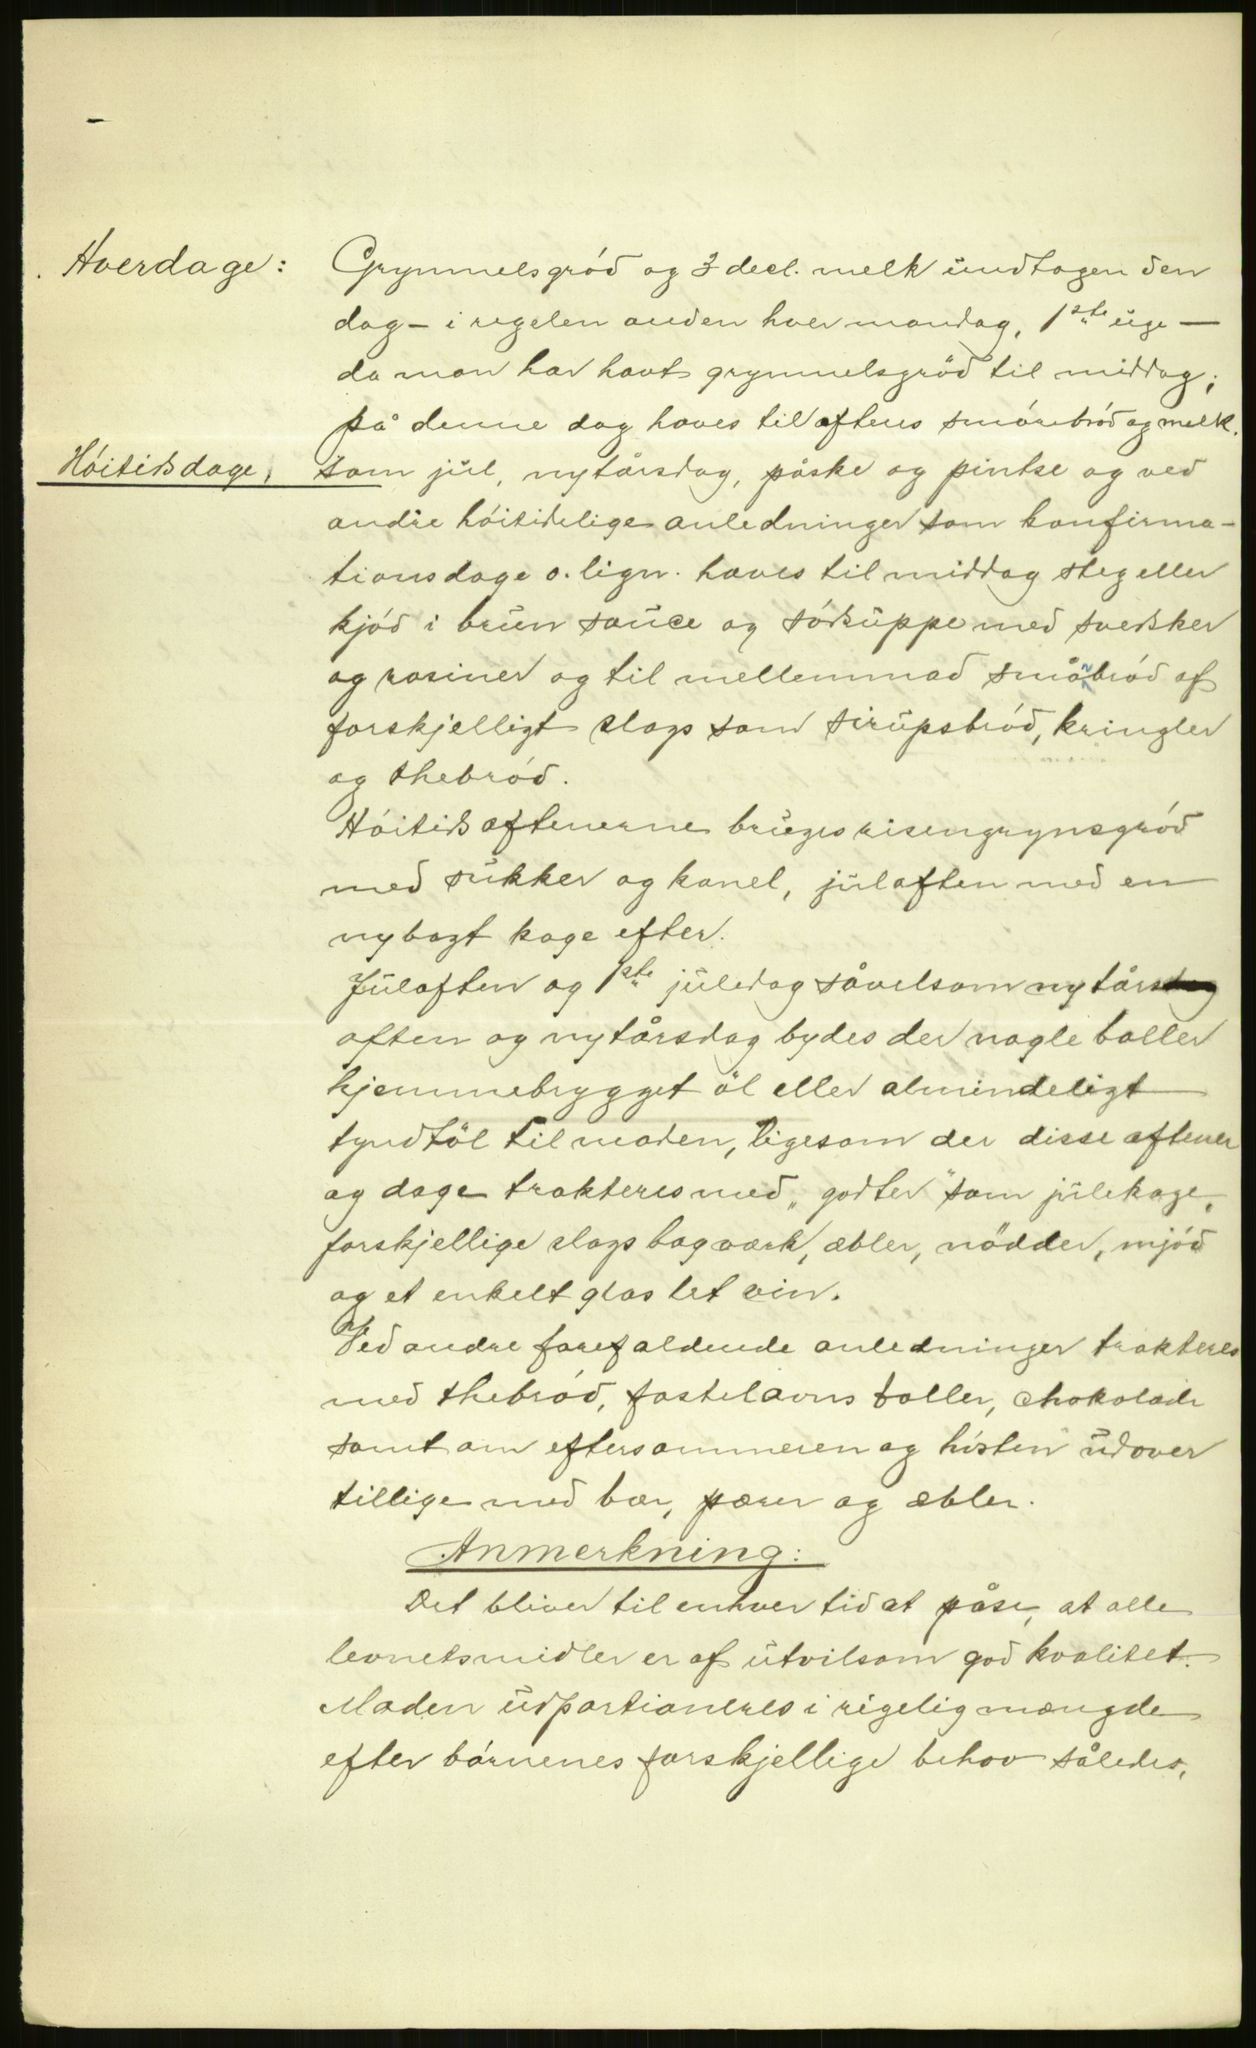 Hverdage: Grynmelsgród og 3 decl. melk undtagen den
dag – i regelen anden hver mandag, 1ste uge –
da man har havt grynmelsgröd til middag;
på denne dag haves til aftens smórebród og melk.
Hóitidsdage, som jul, nytårsdag, påske og pintse og ved
andre hóitidelige anledninger som konfirma-
tionsdage o. lign. haves til middag steg eller
kjód i brun sauce og sódsuppe med svedsker
og rosiner og til mellemmad småbród af
forskjelligt slags som sirupsbród, kringler
og thebród.
Hóitidsaftenerne bruges risengrynsgród
med sukker og kanel, julaften med en
nybagt kage efter.
Julaften og 1ste juledag såvelsom nytårsdag
aften og nytårsdag bydes der nogle boller
hjemmebrygget öl eller almindeligt
tyndtöl til maden, ligesom der disse aftener
og dage trakteres med „godter" som julekage,
forskjellige slags bagværk, æbler, nödder, mjód
og et enkelt glas let vin.
Ved andre forefaldende anledninger trakteres
med thebród, fastelavns boller, chokolade
samt om eftersommeren og hósten udover
tillige med bær, pærer og æbler.
Anmerkning:
Det bliver til enhver tid at påse, at alle
levnetsmidler er af utvilsom god kvalitet.
Maden udportioneres i rigelig mængde
efter bórnenes forskjellige behov således,